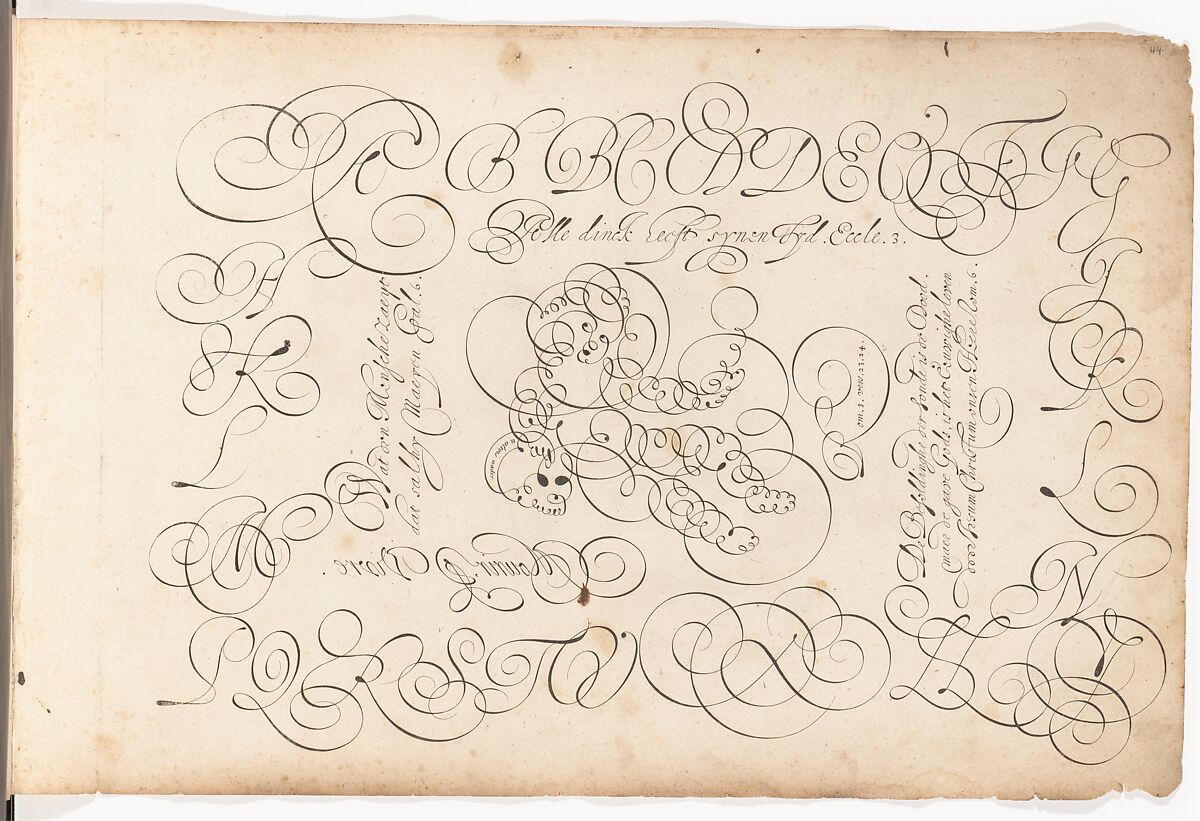 44
A B B C D D E E F G G
Alle dinck heeft synen tyd. Eccle. 3.
H I
K K
L L
M N
Wat een Mensche zaeyt
dat sal hy Maeyen Gal. 6.
Rom. 3. vers. 23. 24.
De Besoldinghe der Sonden is de Dood.
maer de gave Gods, is het Eeuwighe leven
door Iesum Christum onsen Heere Rom. 6.
P Q R S T